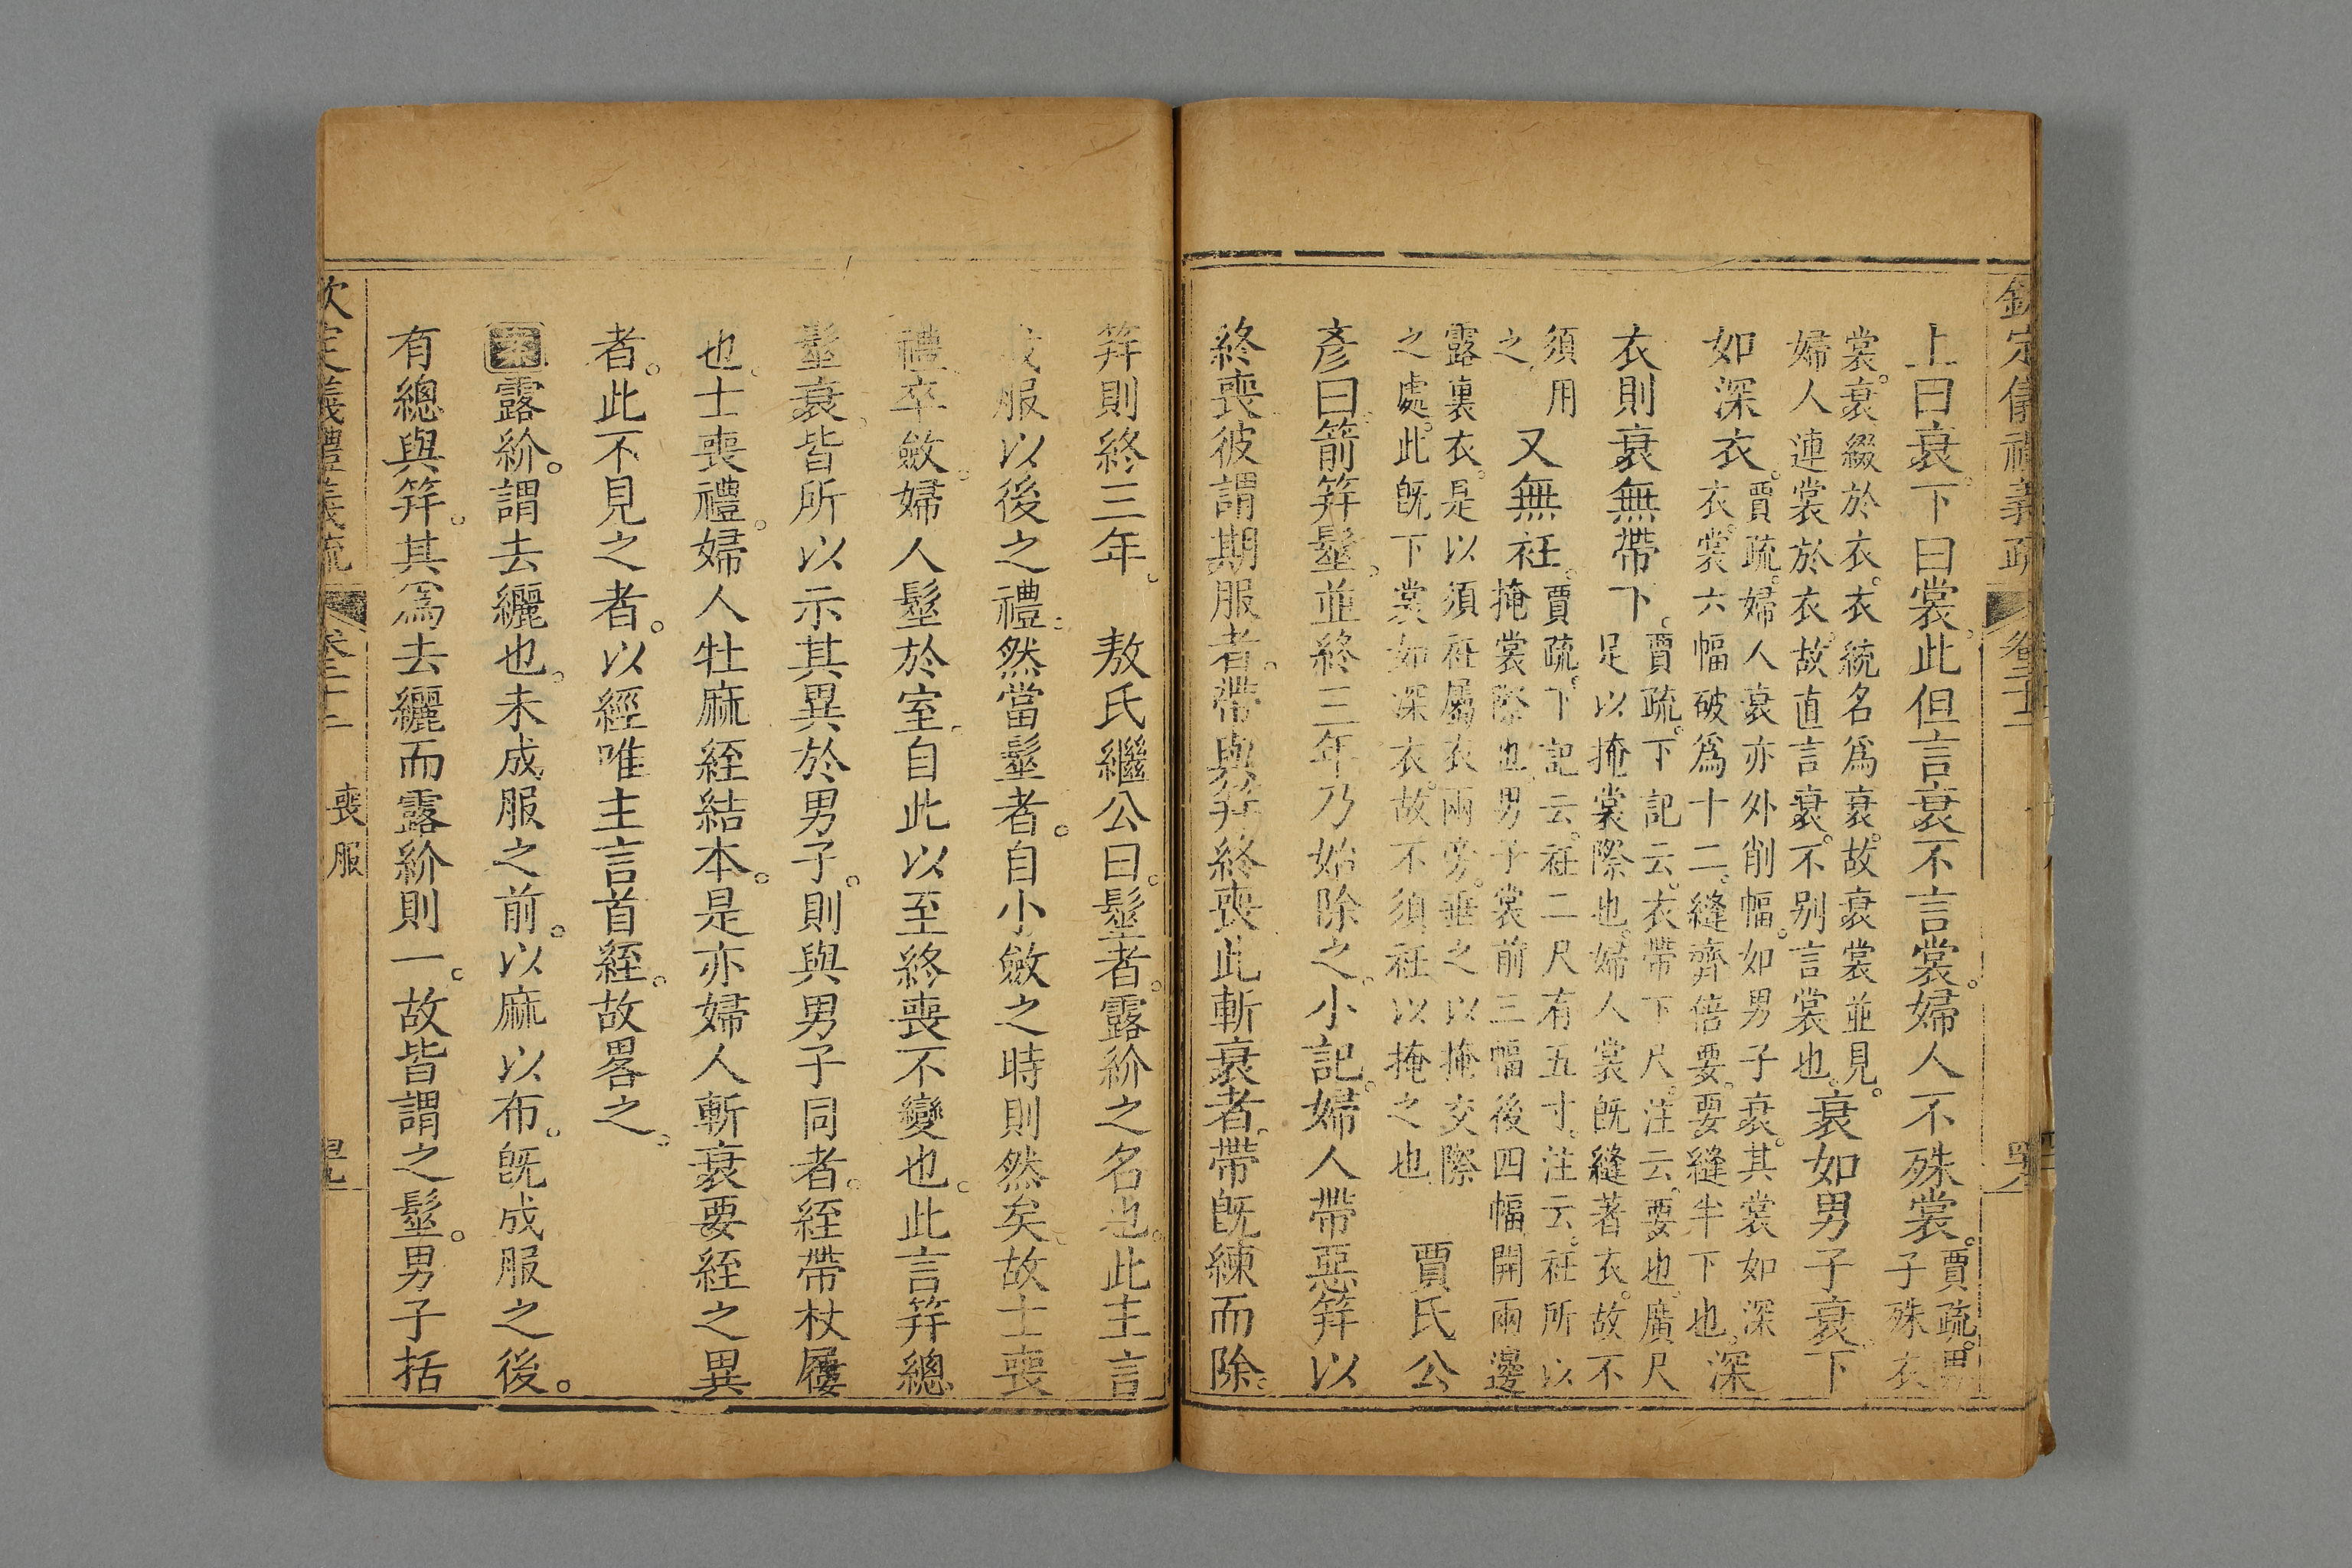 欽定儀禮義疏 卷二十二
上曰衰。下曰裳。此但言衰不言裳。婦人不殊裳。賈疏。男
子殊衣
裳。衰綴於衣。衣統名爲衰。故衰裳並見。
婦人連裳於衣。故直言衰。不别言裳也。衰如男子衰。下
如深衣。賈疏。婦人衰亦外削幅。如男子衰。其裳如深
衣。裳六幅破爲十二。縫齊倍要。要縫半下也。深
衣則衰無帶下。賈疏。下記云。衣帶下尺。注云。要也。廣尺
足以掩裳際也。婦人裳旣縫著衣。故不
須用
之。又無衽。賈疏。下記云。衽二尺有五寸。注云。衽所以
掩裳際也。男子裳前三幅後四幅開兩邊
露裏衣。是以須衽屬衣兩旁。垂之以掩交際
之處。此旣下裳如深衣。故不須衽以掩之也 賈氏公
彥曰。箭笄髽。並終三年乃始除之。小記。婦人帶惡笄以
終喪彼謂期服者。帶與笄終喪此斬衰者。帶旣練而除。
笄則終三年。 敖氏繼公曰。髽者。露紒之名也。此主言
服以後之禮。然當髽者。自小斂之時則然矣。故士喪
禮卒斂。婦人髽於室。自此以至終喪不變也。此言笄總
髽衰。皆所以示其異於男子。則與男子同者。絰帶杖屨
也。士喪禮。婦人牡麻絰結本。是亦婦人斬衰要絰之異
者。此不見之者。以經唯主言首絰。故畧之。
案露紒。謂去纚也。未成服之前。以麻以布。旣成服之後。
有總與笄。其爲去纚而露紒則一。故皆謂之髽。男子括
欽定儀禮義疏 卷二十二 喪服